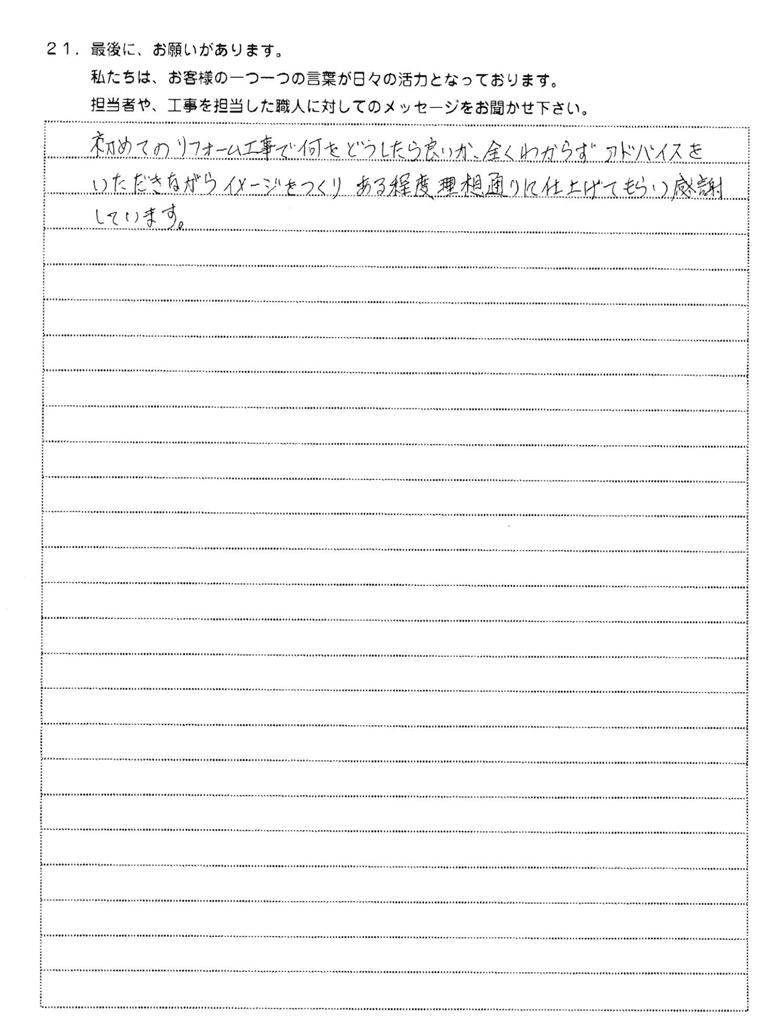 21．最後に、お願いがあります。
私たちは、お客様の一つ一つの言葉が日々の活力となっております。
担当者や、工事を担当した職人に対してのメッセージをお聞かせ下さい。
初めてのリフォーム工事で何をどうしたら良いか、全くわからず アドバイスを
いただきながらイメージをつくり ある程度理想通りに仕上げてもらい感謝
しています。